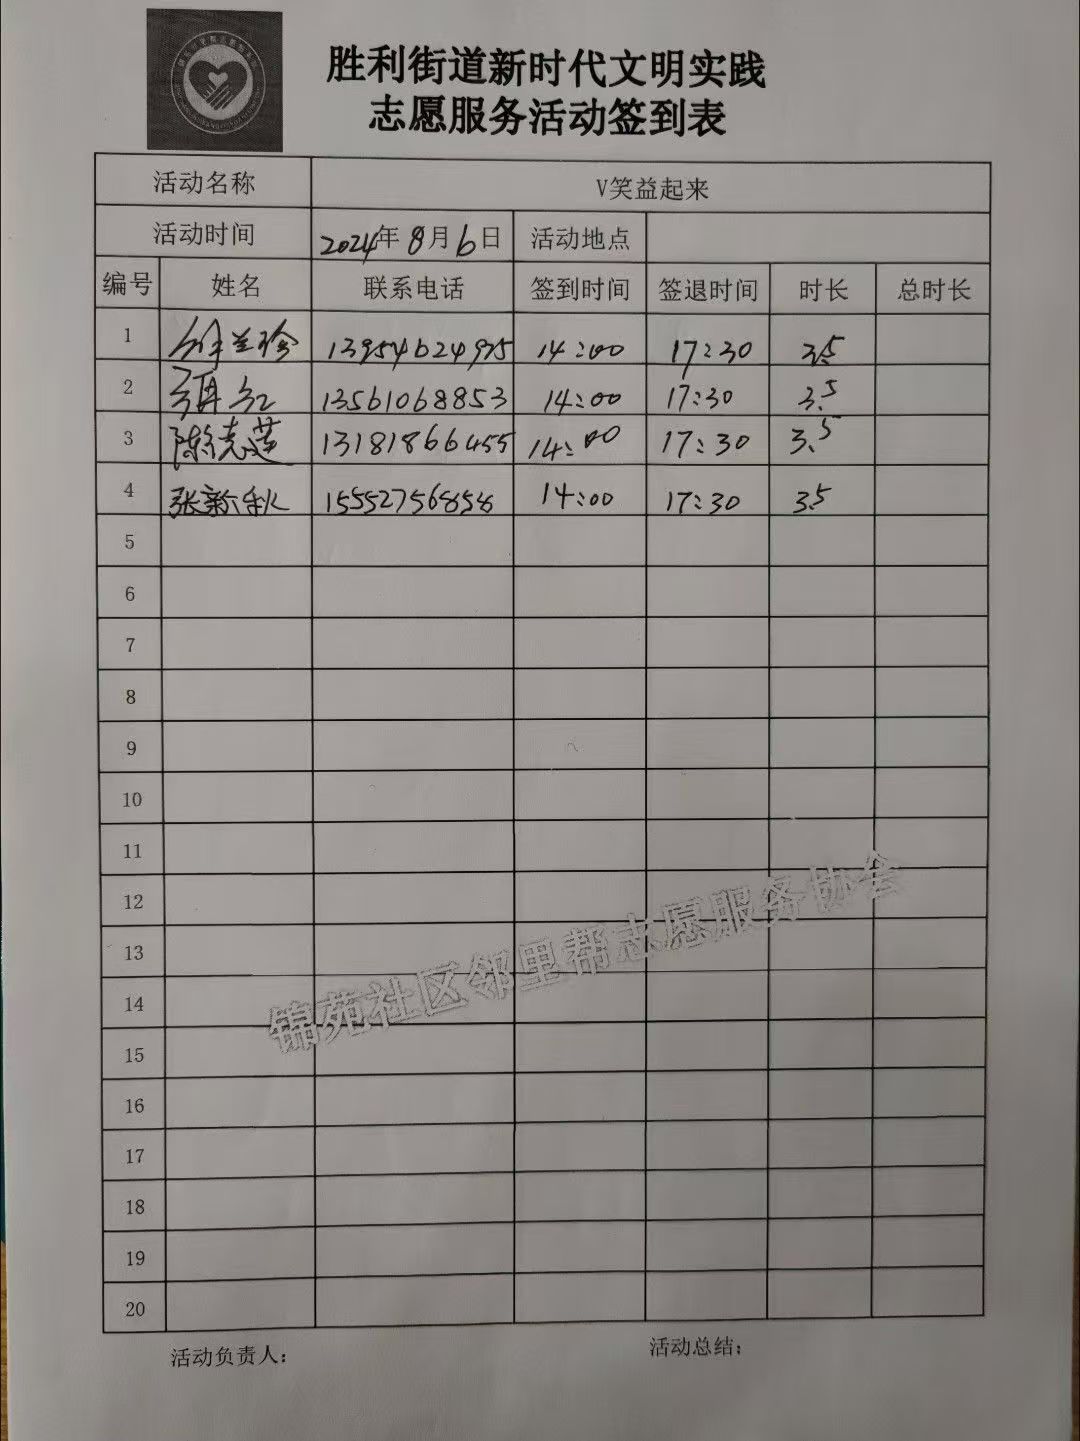 胜利街道新时代文明实践
志愿服务活动签到表
活动名称 V笑益起来
活动时间 2024年8月6日 活动地点
编号 姓名 联系电话 签到时间 签退时间 时长 总时长
1 徐兰珍 13954624975 14:00 17:30 3.5
2 13561068853 14:00 17:30 3.5
3 陈志莲 13181866455 14:00 17:30 3.5
4 张新秋 15552756858 14:00 17:30 3.5
5
6
7
8
9
10
11
12
13
14
15
16
17
18
19
20
锦苑社区邻里帮志愿服务协会
活动负责人: 活动总结: